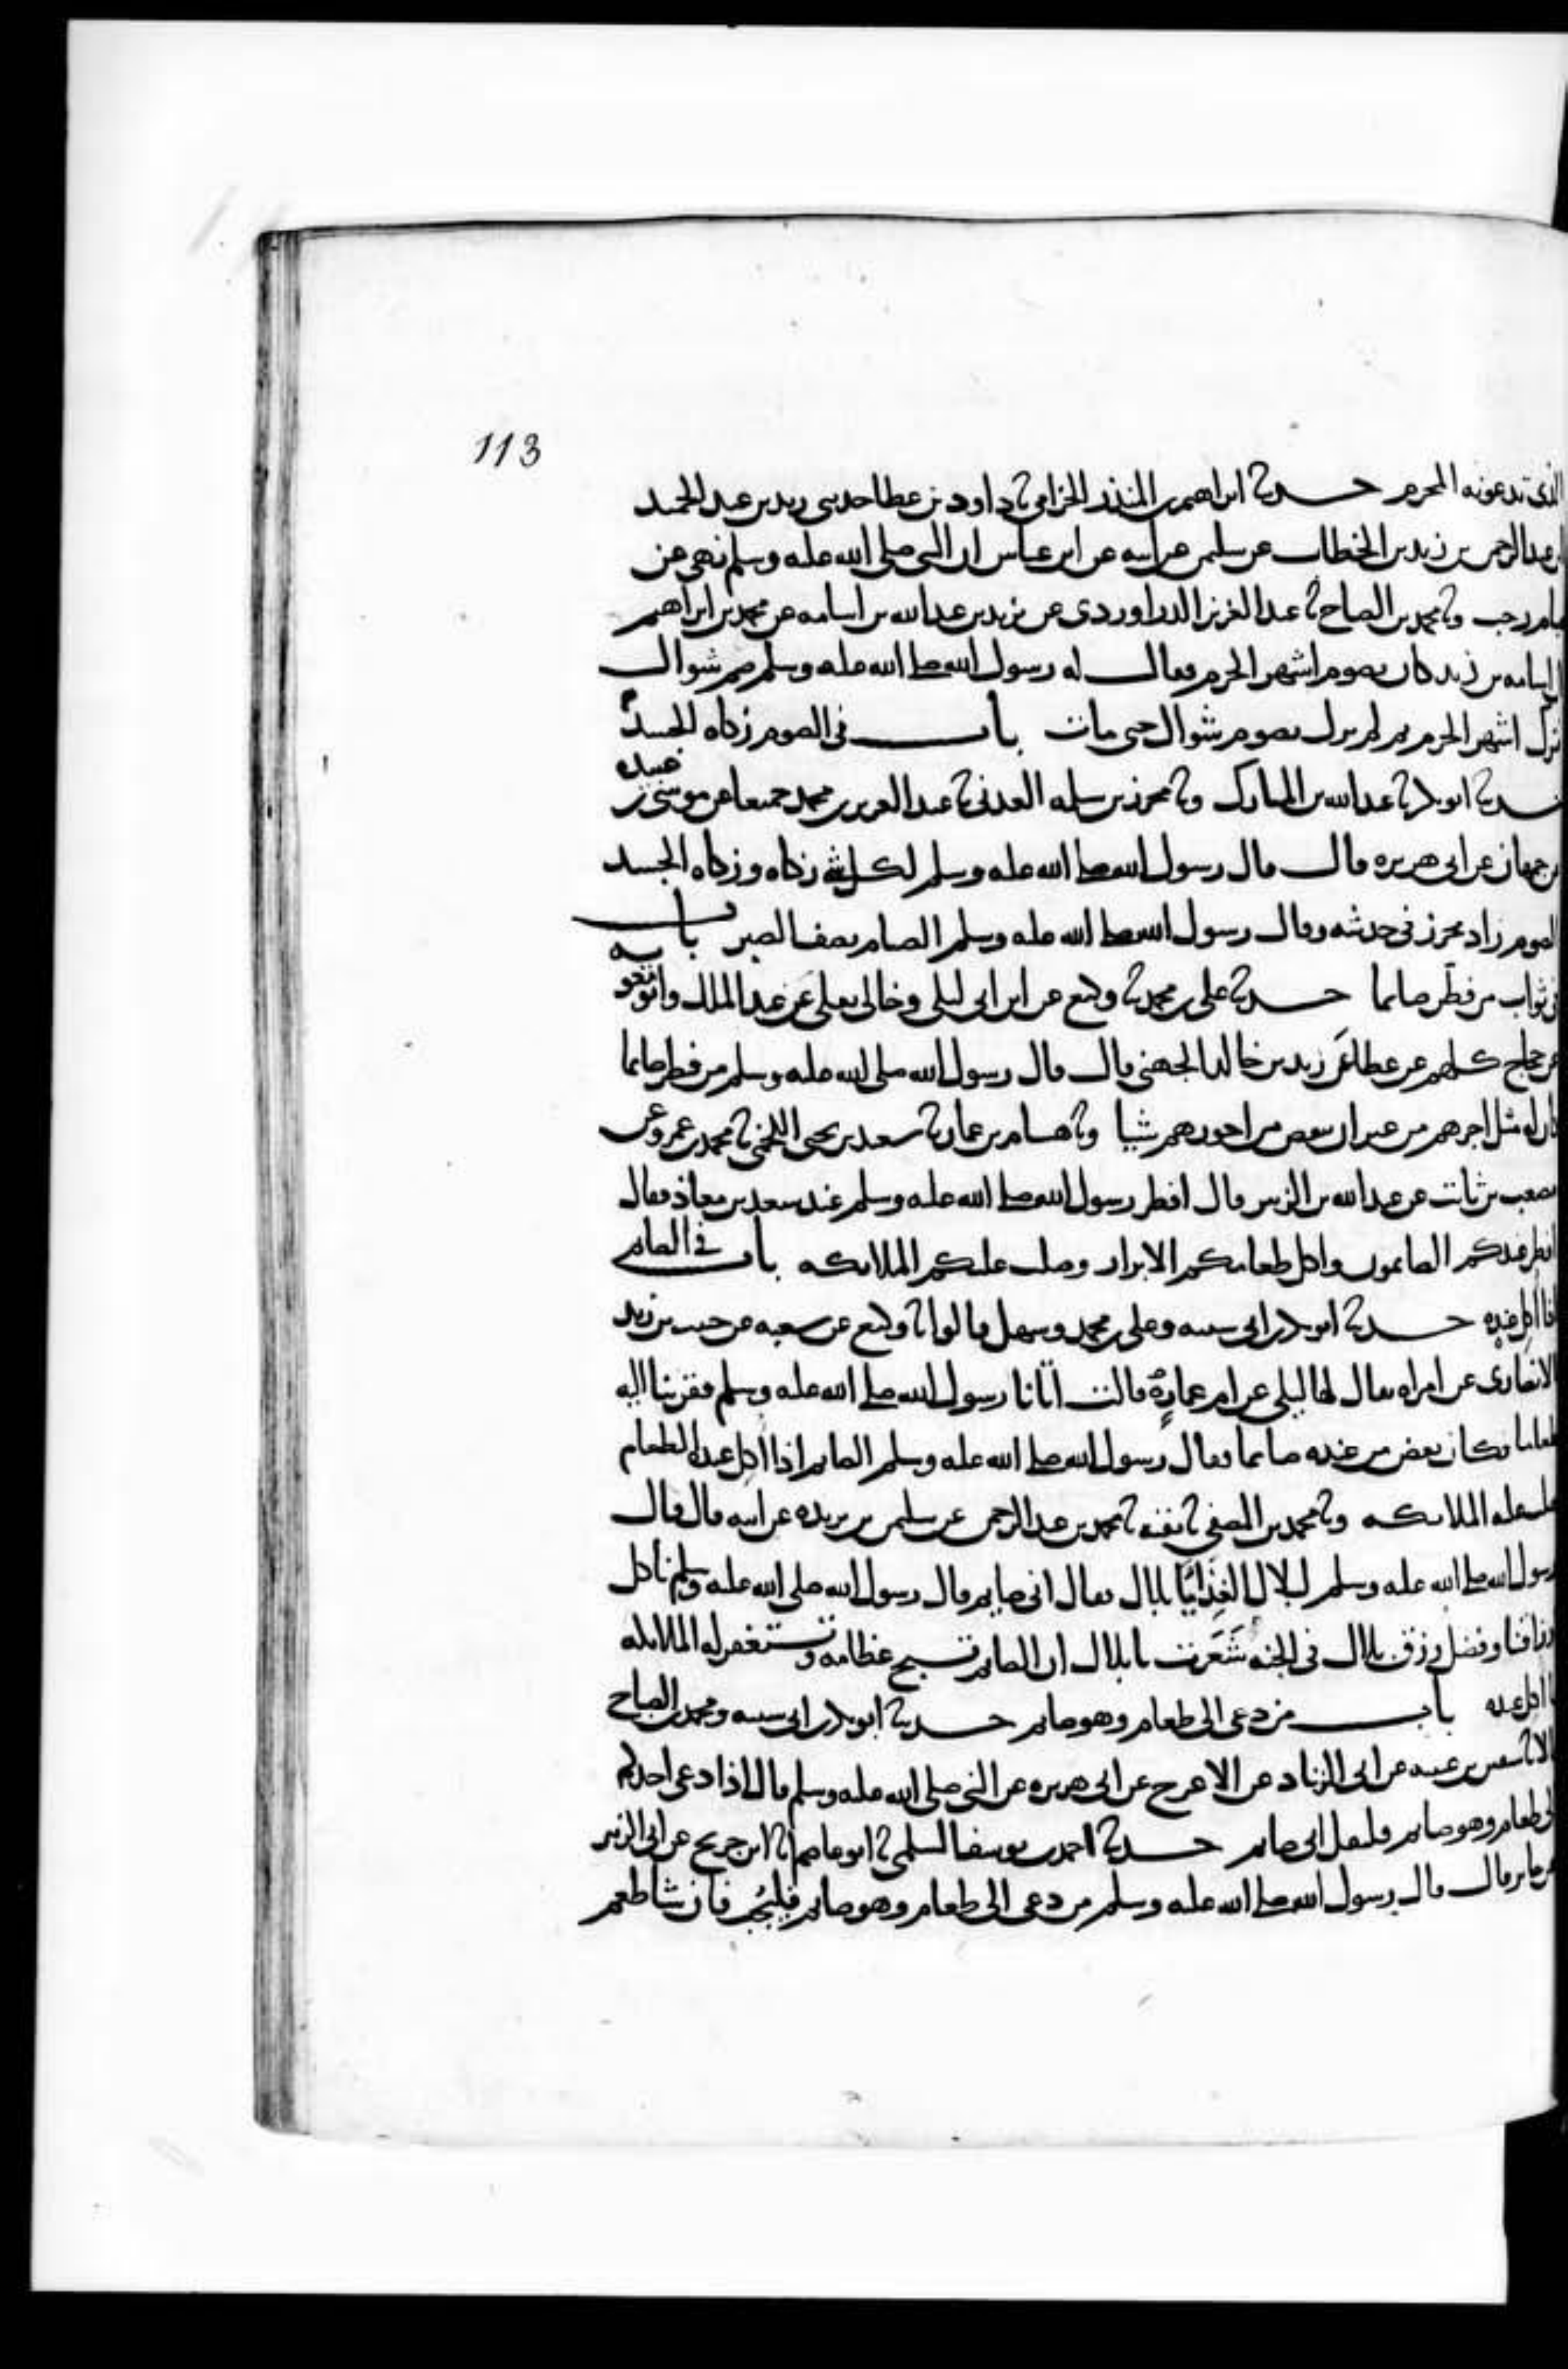 113
الذى تدعونه المحرم حدثنا ابراهيم بن المنذر الخزامي ثنا داود بن عطا حدثنى زيد بن عبد الحميد
بن عبد الرحمن بن زيد بن الخطاب عن سليمن عن ابيه عن ابن عباس ان النبى صلى الله عليه وسلم نهى عن
صيام رجب وثنا محمد بن الصباح ثنا عبد العزيز الدراوردى عن يزيد بن عبد الله بن اسامه عن محمد بن ابراهيم
ان اسامه بن زيد كان يصوم اشهر الحرم فقال له رسول الله صلى الله عليه وسلم صم شوال
فترك اشهر الحرم ثم لم يزل يصوم شوال حتى مات باب فى الصوم زكاه الجسد
حدثنا ابو بكر ثنا عبد الله بن المبارك وثنا محرز بن سلمه العدنى ثنا عبد العزيز بن محمد جميعا عن موسى بن عبيده
عن جمهان عن ابى هريره قال قال رسول الله صلى الله عليه وسلم لكل شى زكاه وزكاه الجسد
الصوم زاد محرز فى حديثه وقال رسول الله صلى الله عليه وسلم الصيام نصف الصبر باب
فى ثواب من فطر صايما حدثنا على بن محمد ثنا وكيع عن ابن ابى ليلى وخالى يعلى عن عبد الملك وابو معويه
عن حجاج كلهم عن عطا عن زيد بن خالد الجهنى قال قال رسول الله صلى الله عليه وسلم من فطر صايما
كان له مثل اجرهم من غير ان ينقص من اجورهم شيا وثنا هشام بن عمار ثنا سعد بن يحيى اللخمى ثنا محمد بن عمرو عن
مصعب بن ثابت عن عبد الله بن الزبير قال افطر رسول الله صلى الله عليه وسلم عند سعد بن معاذ فقال
افطر عندكم الصايمون واكل طعامكم الابرار وصلت عليكم الملايكه باب فى الصايم
اذا اكل عنده حدثنا ابو بكر بن ابى شيبه وعلى بن محمد وسهل قالوا ثنا وكيع عن شعبه عن حبيب بن زيد
الانصارى عن امراه يقال لها ليلى عن ام عماره قالت اتانا رسول الله صلى الله عليه وسلم فقربنا اليه
طعاما فكان بعض من عنده صايما فقال رسول الله صلى الله عليه وسلم الصايم اذا اكل عنده الطعام
صلت عليه الملايكه وثنا محمد بن المصفى ثنا بقيه ثنا محمد بن عبد الرحمن عن سليمن بن بريده عن ابيه قال قال
رسول الله صلى الله عليه وسلم لبلال الغذا يا بلال فقال انى صايم قال رسول الله صلى الله عليه وسلم ناكل
ارزاقنا وفضل رزق بلال فى الجنه شعرت يا بلال ان الصايم تسبح عظامه وتستغفر له الملايكه
ما اكل عنده باب من دعى الى طعام وهو صايم حدثنا ابو بكر بن ابى شيبه ومحمد بن الصباح
قالا ثنا سفين بن عيينه عن ابى الزناد عن الاعرج عن ابى هريره عن النبى صلى الله عليه وسلم قال اذا دعى احدكم
الى طعام وهو صايم فليقل انى صايم حدثنا احمد بن يوسف السلمى ثنا ابو عاصم انا ابن جريج عن ابى الزبير
عن جابر قال قال رسول الله صلى الله عليه وسلم من دعى الى طعام وهو صايم فليجب فان شا طعم